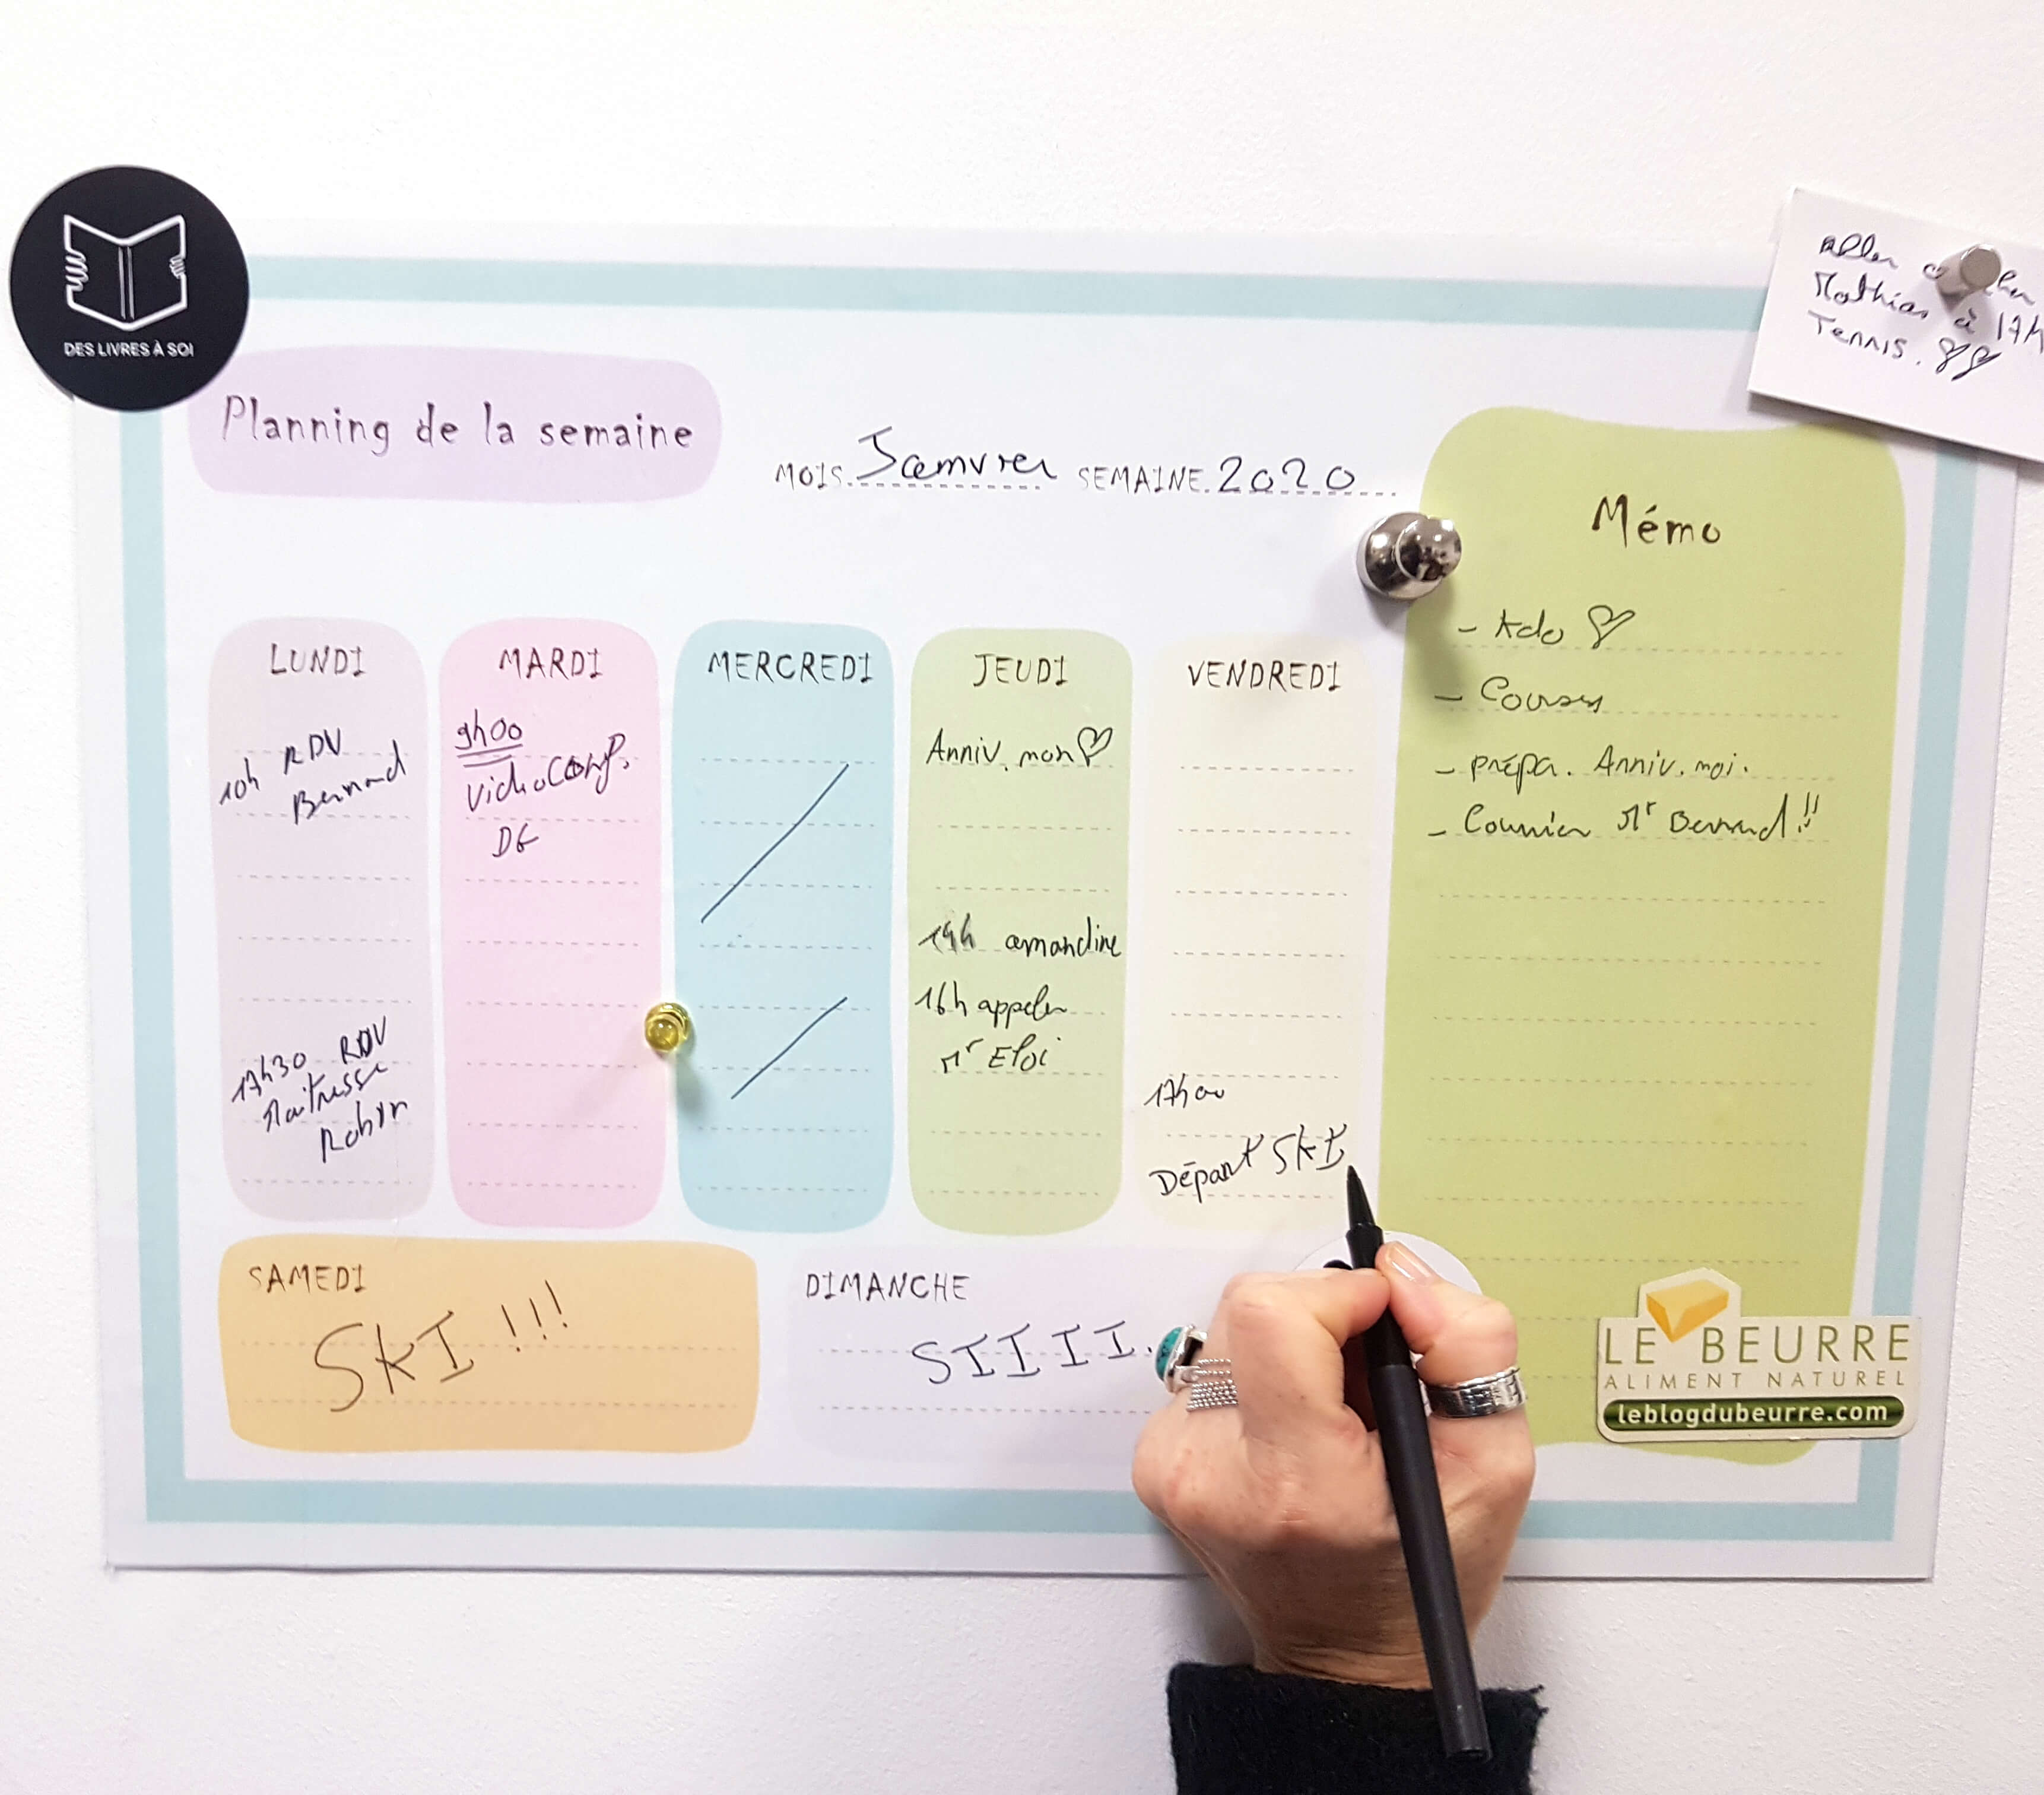 DES LIVRES À SOI
aller
Mathias à 17h
Tennis.
Planning de la semaine
MOIS. Janvier SEMAINE. 2020
Mémo
- Kdo ♡
- Courses
- prépa. Anniv. moi.
- Courrier Mr Bernard !!
LUNDI
10h RDV
Bernard
17h30 RDV
Maitresse
Robin
MARDI
9h00
VidéoConf.
DG
MERCREDI
JEUDI
Anniv. mon ♡
14h amandine
16h appeler
Mr Eloi
VENDREDI
17h00
Départ SKI
SAMEDI
SKI !!!
DIMANCHE
SIIII.
LE BEURRE
ALIMENT NATUREL
leblogdubeurre.com